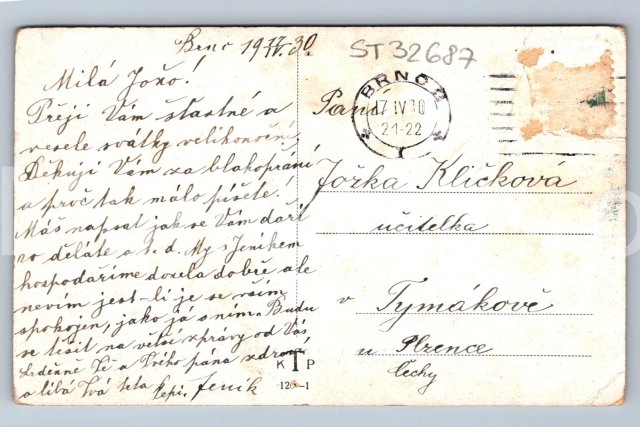 Brno 19 17/IV. 30.
ST32687
Milá Jožo!
Přeji Vám šťastné a
veselé svátky velikonoční,
Děkuji Vám za blahopřání
a proč tak málo píšete!
Máš napsat jak se Vám daří
co děláte a t. d. My s Jeníkem
hospodaříme docela dobře ale
nevím jest-li je se vším
spokojen, jako já s ním. Budu
se těšit na větší zprávy od Vás
Srdečně Tě a Tvého pána zdraví
a líbá Tvá teta Pepi. Jeník
BRNO 2
17 IV 30
21-22
Paní
Jožka Kličková
učitelka
v Tymákově
u Plzence
Čechy
K T P
126-1